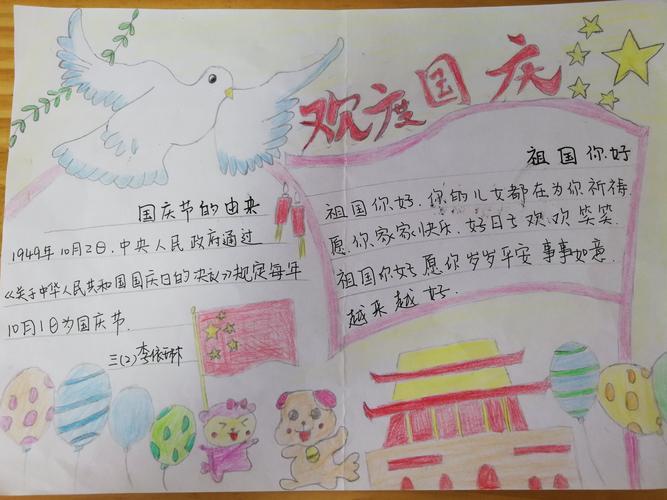 欢度国庆
国庆节的由来
1949年10月2日,中央人民政府通过
《关于中华人民共和国国庆日的决议》规定每年
10月1日为国庆节.
三(2)李依琳
祖国你好
祖国你好.你的儿女都在为你祈祷.
愿你家家快乐.好日子欢欢笑笑.
祖国你好愿你岁岁平安事事如意.
越来越好.